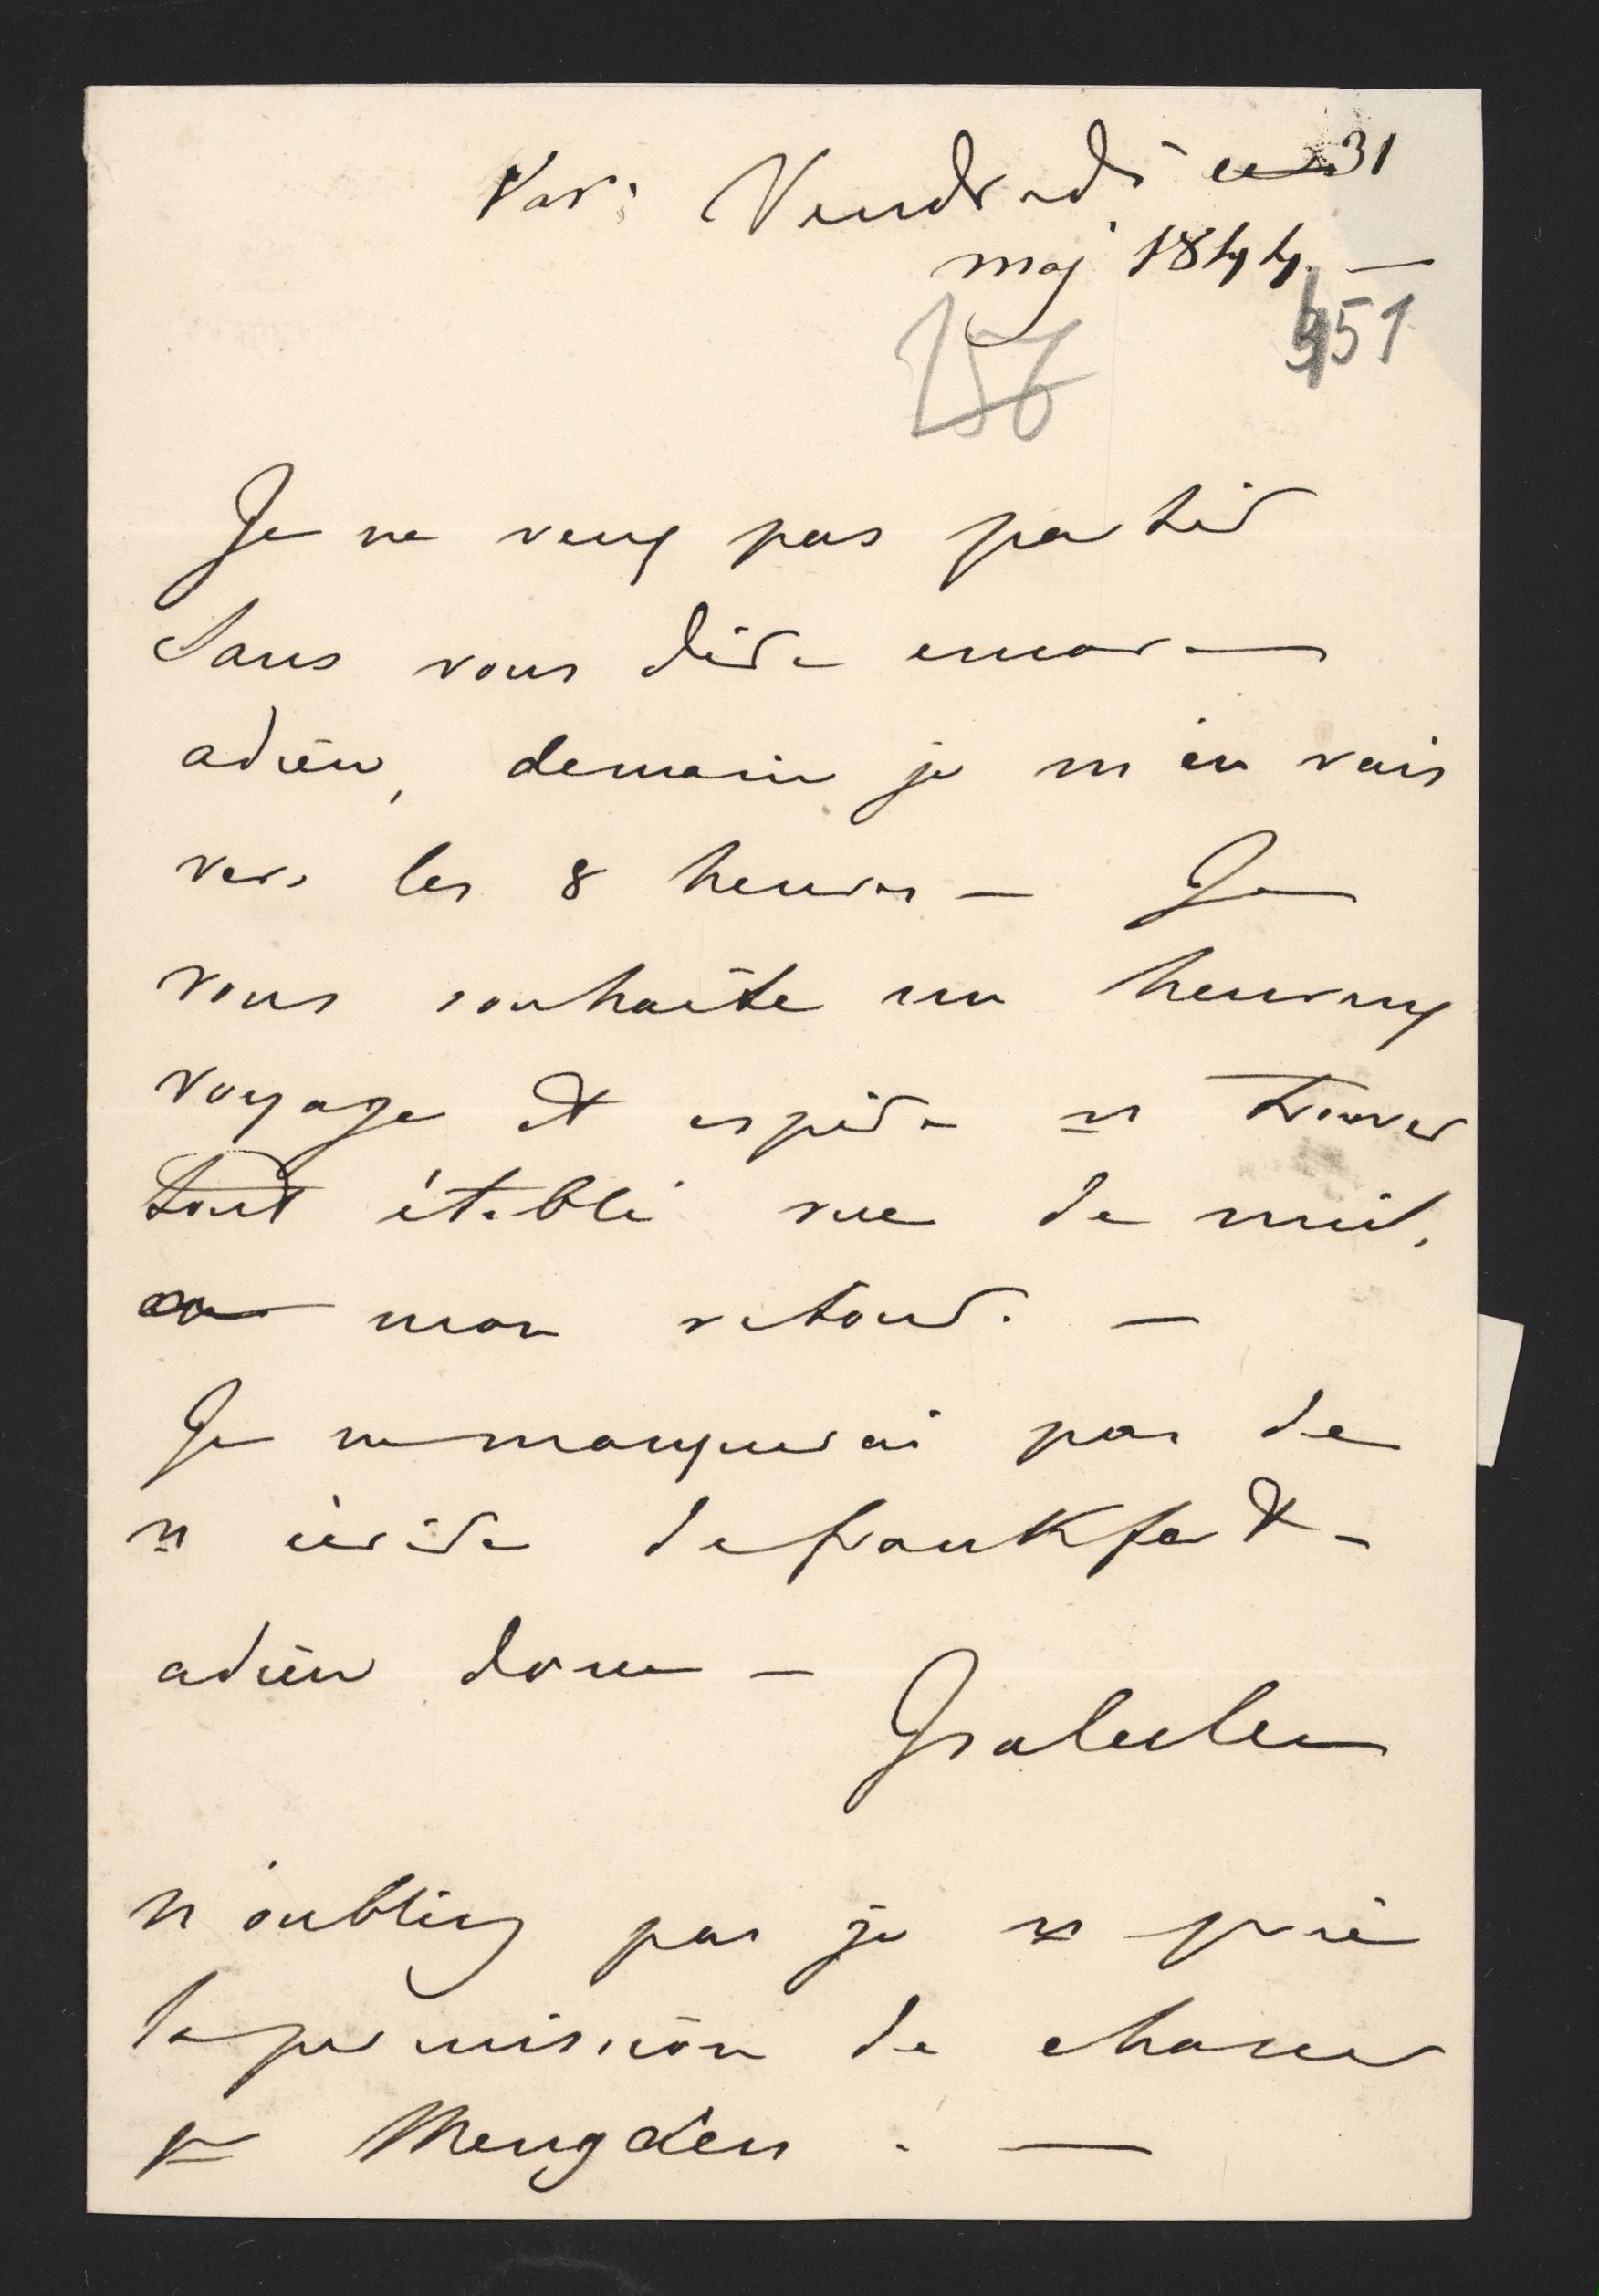 Var: Vendredi ce 31
maj 1844. —
156 551
Je ne veux pas partir
sans vous dire encore
adieu, demain je m'en vais
vers les 8 heures — Je
vous souhaite un heureux
voyage et espère vs trouver
tout établi rue de
mon retour. —
Je ne manquerai pas de
vs écrire de frankfort —
adieu donc —
n'oubliez pas je vs prie
la permission de chasser
pr Mengden . —